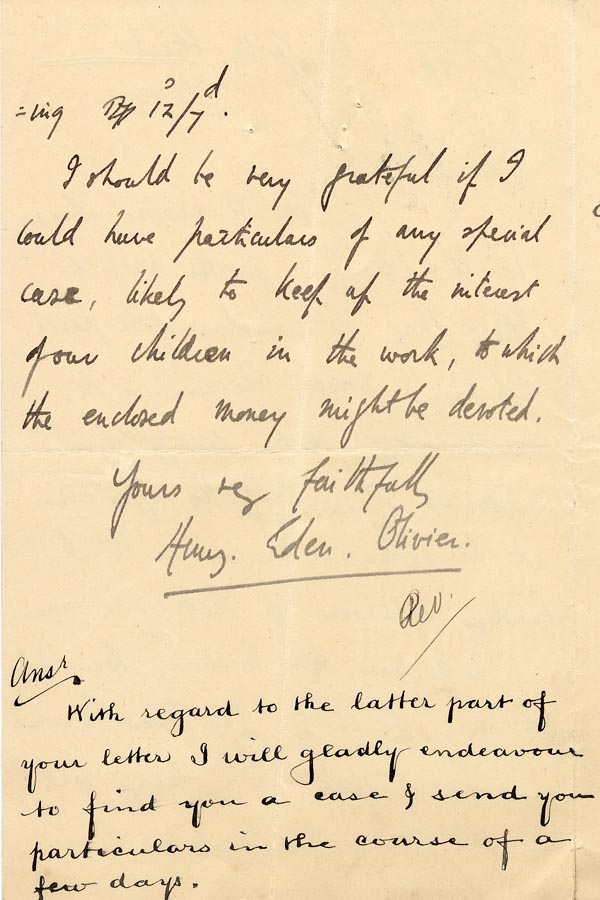 =ing 12/7ᵈ.
I should be very grateful if I
could have particulars of any special
case, likely to keep up the interest
of our children in the work, to which
the enclosed money might be devoted.
Yours very faithfully
Henry. Eden. Olivier.
Rev.
Ansr
With regard to the latter part of
your letter I will gladly endeavour
to find you a case & send you
particulars in the course of a
few days.